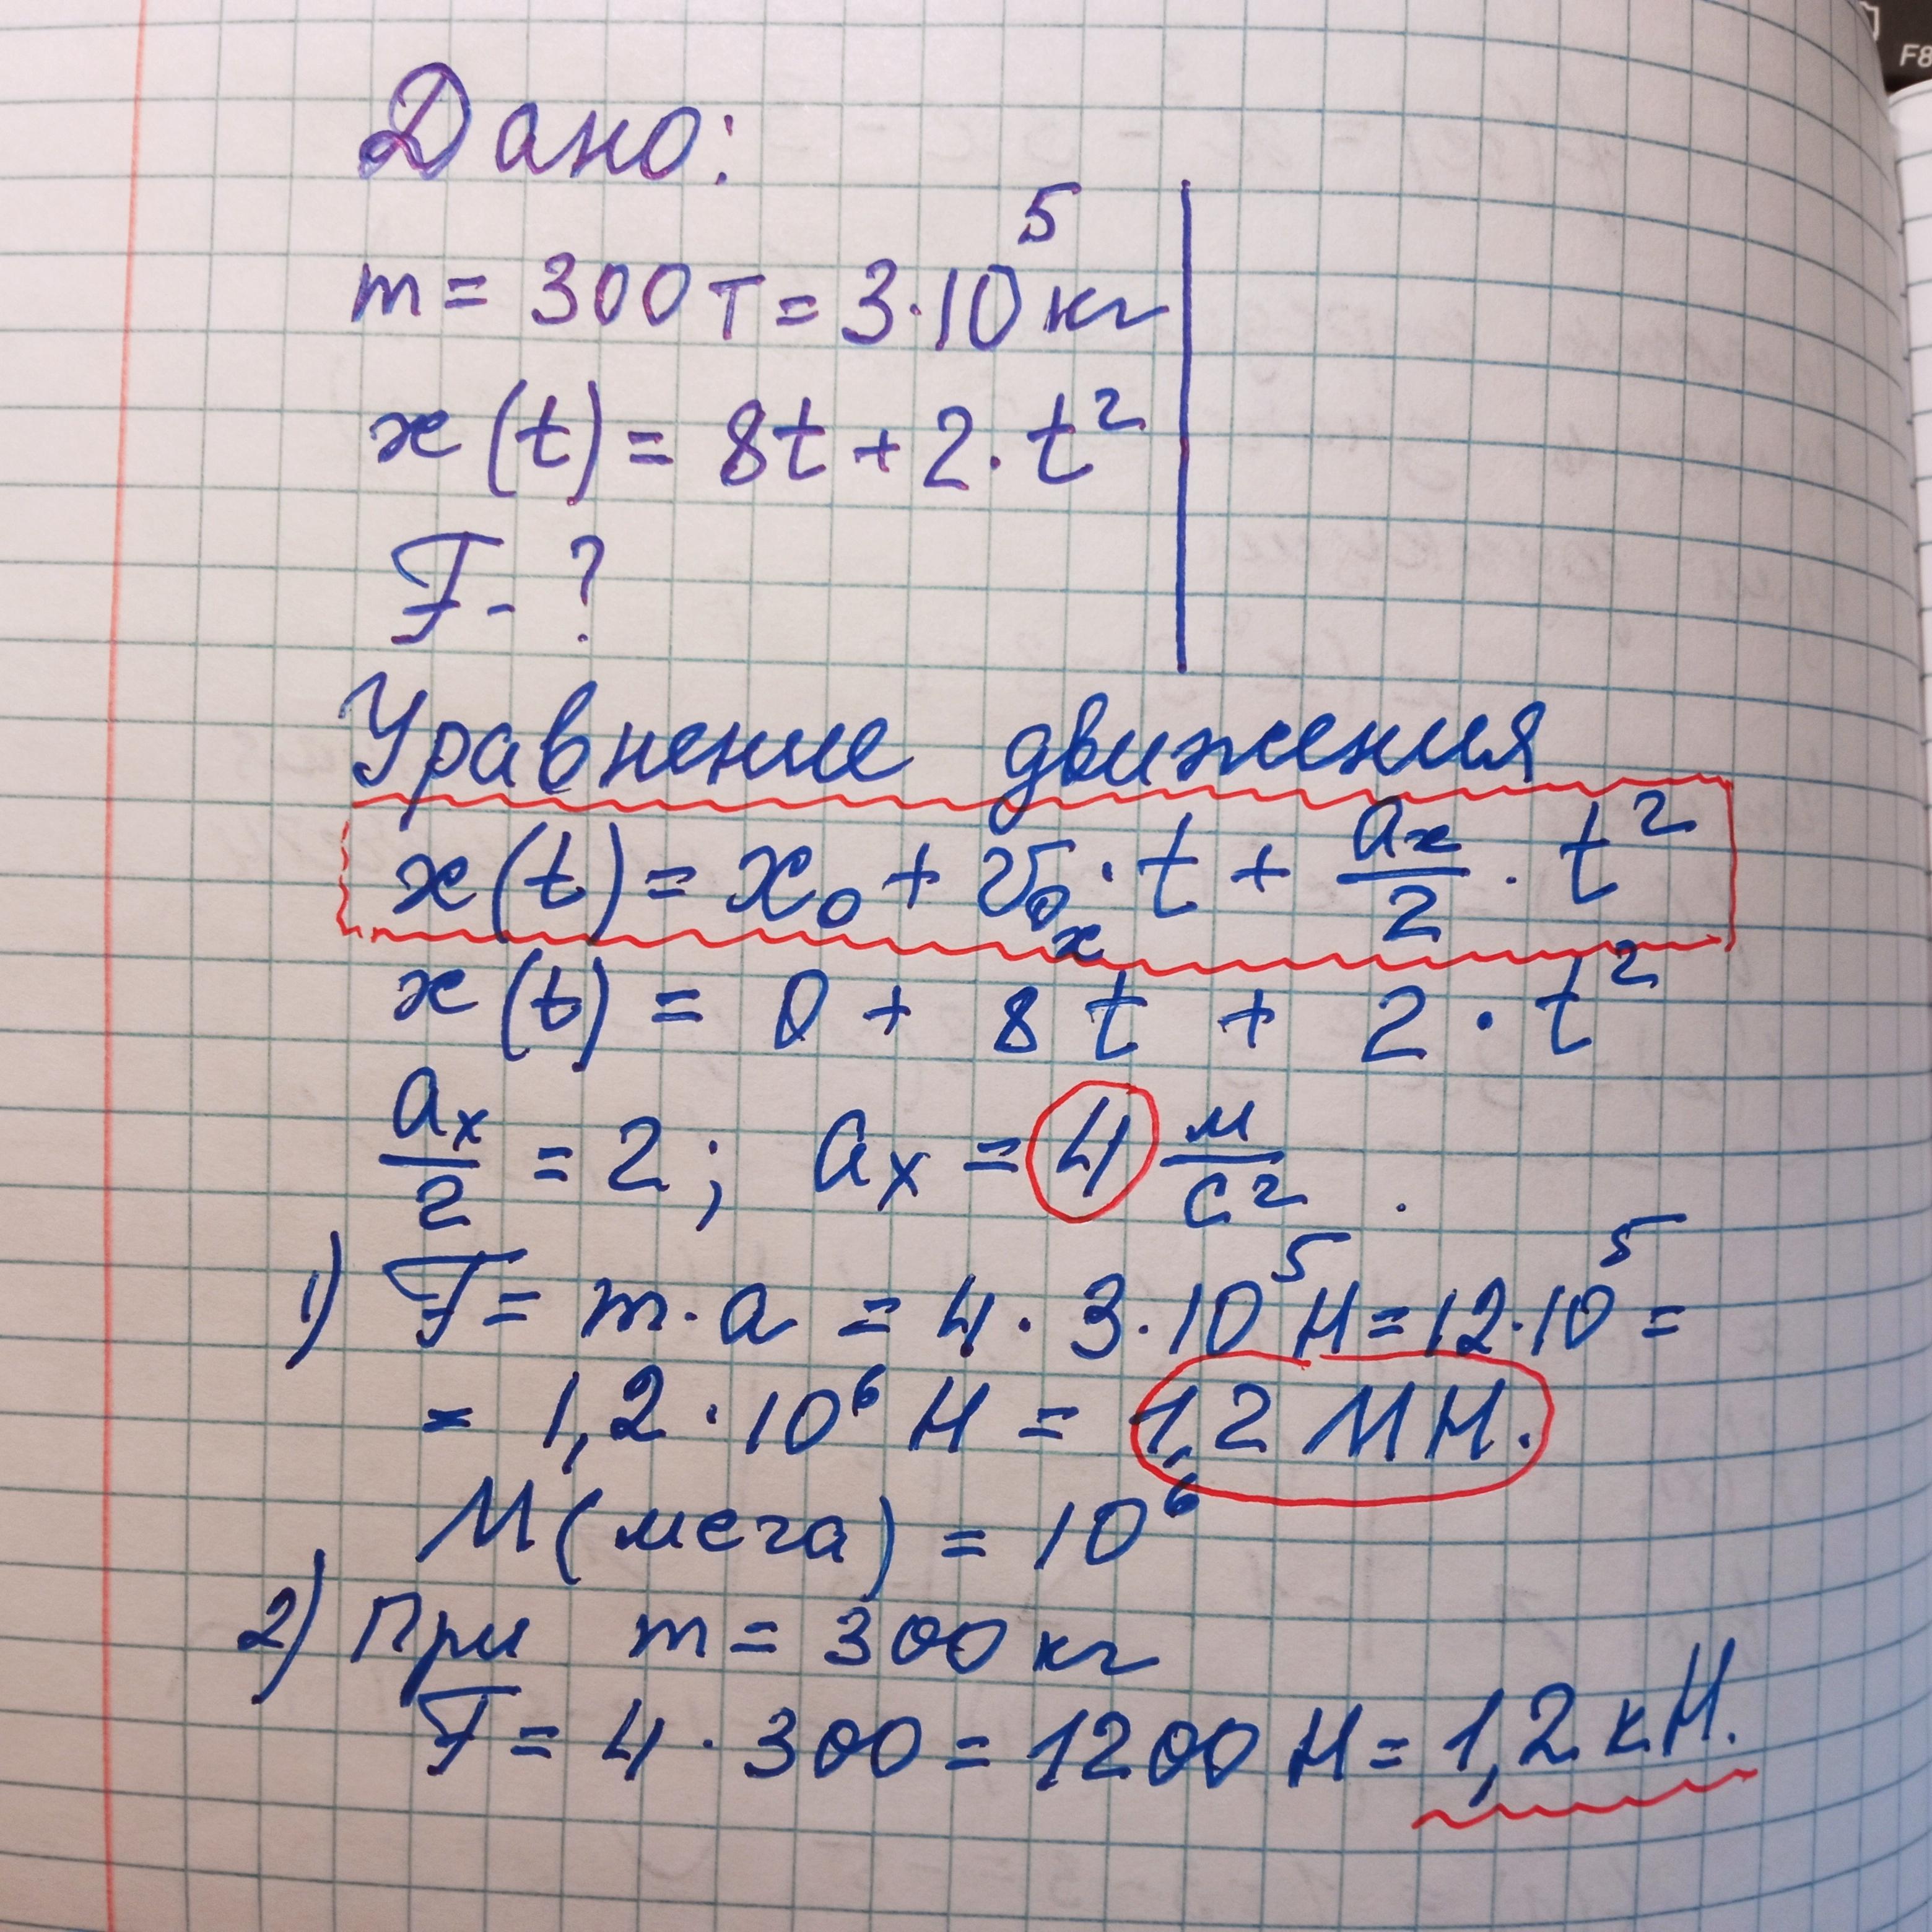 F8
Дано:
m = 300 т = 3·10⁵ кг
x(t) = 8t + 2·t²
F - ?
Уравнение движения
x(t) = x₀ + v₀ₓ·t + aₓ/2 · t²
x(t) = 0 + 8t + 2·t²
aₓ/2 = 2; aₓ = 4 м/с².
1) F = m·a = 4·3·10⁵ Н = 12·10⁵ =
= 1,2·10⁶ Н = 1,2 МН.
М(мега) = 10⁶
2) При m = 300 кг
F = 4·300 = 1200 Н = 1,2 кН.